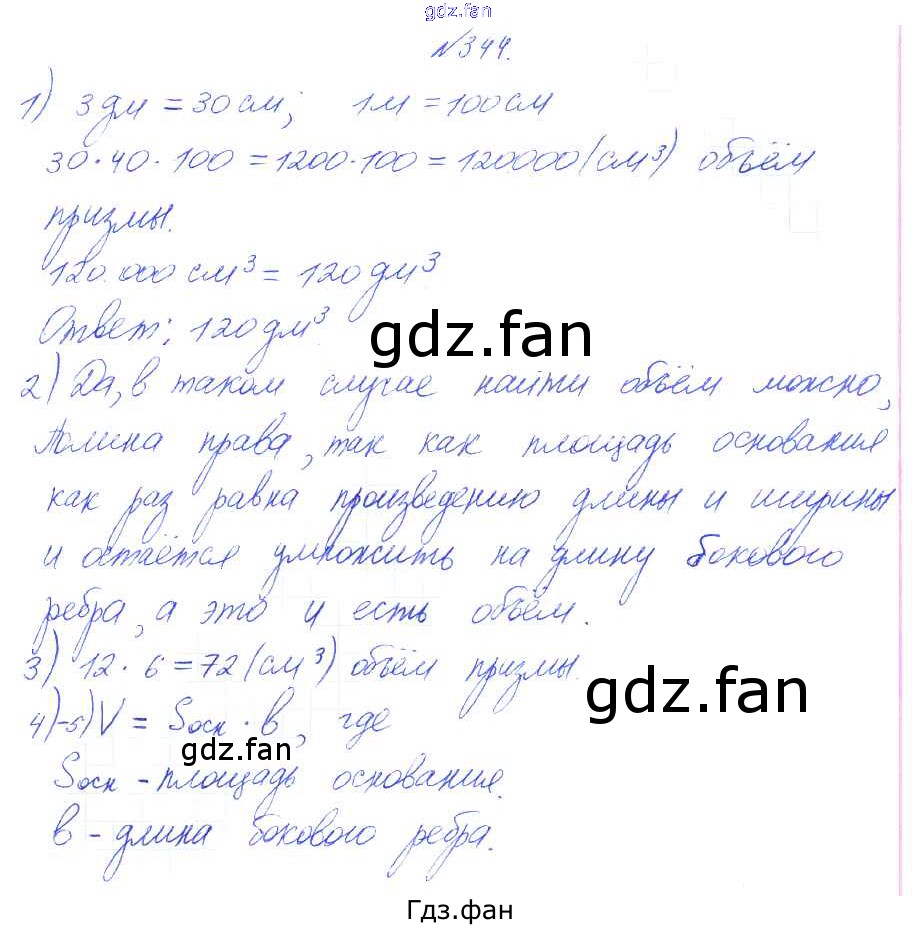 gdz.fan
№344.
1) 3 дм = 30 см; 1м = 100 см
30·40·100 = 1200·100 = 120000 (см³) объём
призмы.
120.000 см³ = 120 дм³
Ответ: 120 дм³.
gdz.fan
2) Да, в таком случае найти объём можно,
Полина права, так как площадь основания
как раз равна произведению длины и ширины
и остаётся умножить на длину бокового
ребра, а это и есть объём.
3) 12 · 6 = 72 (см³) объём призмы.
gdz.fan
4)-5) V = Sосн · b, где
gdz.fan
Sосн - площадь основания.
b - длина бокового ребра.
Гдз.фан